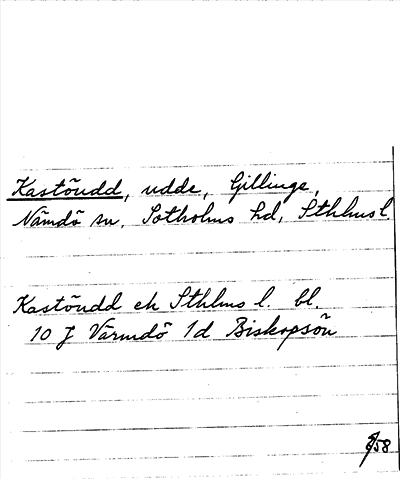 Kastöudd, udde, Gillinge,
Nämdö sn, Sotholms hd, Sthlms l.
Kastöudd ek Sthlms l. bl.
10 J Värmdö 1d Biskopsön
58